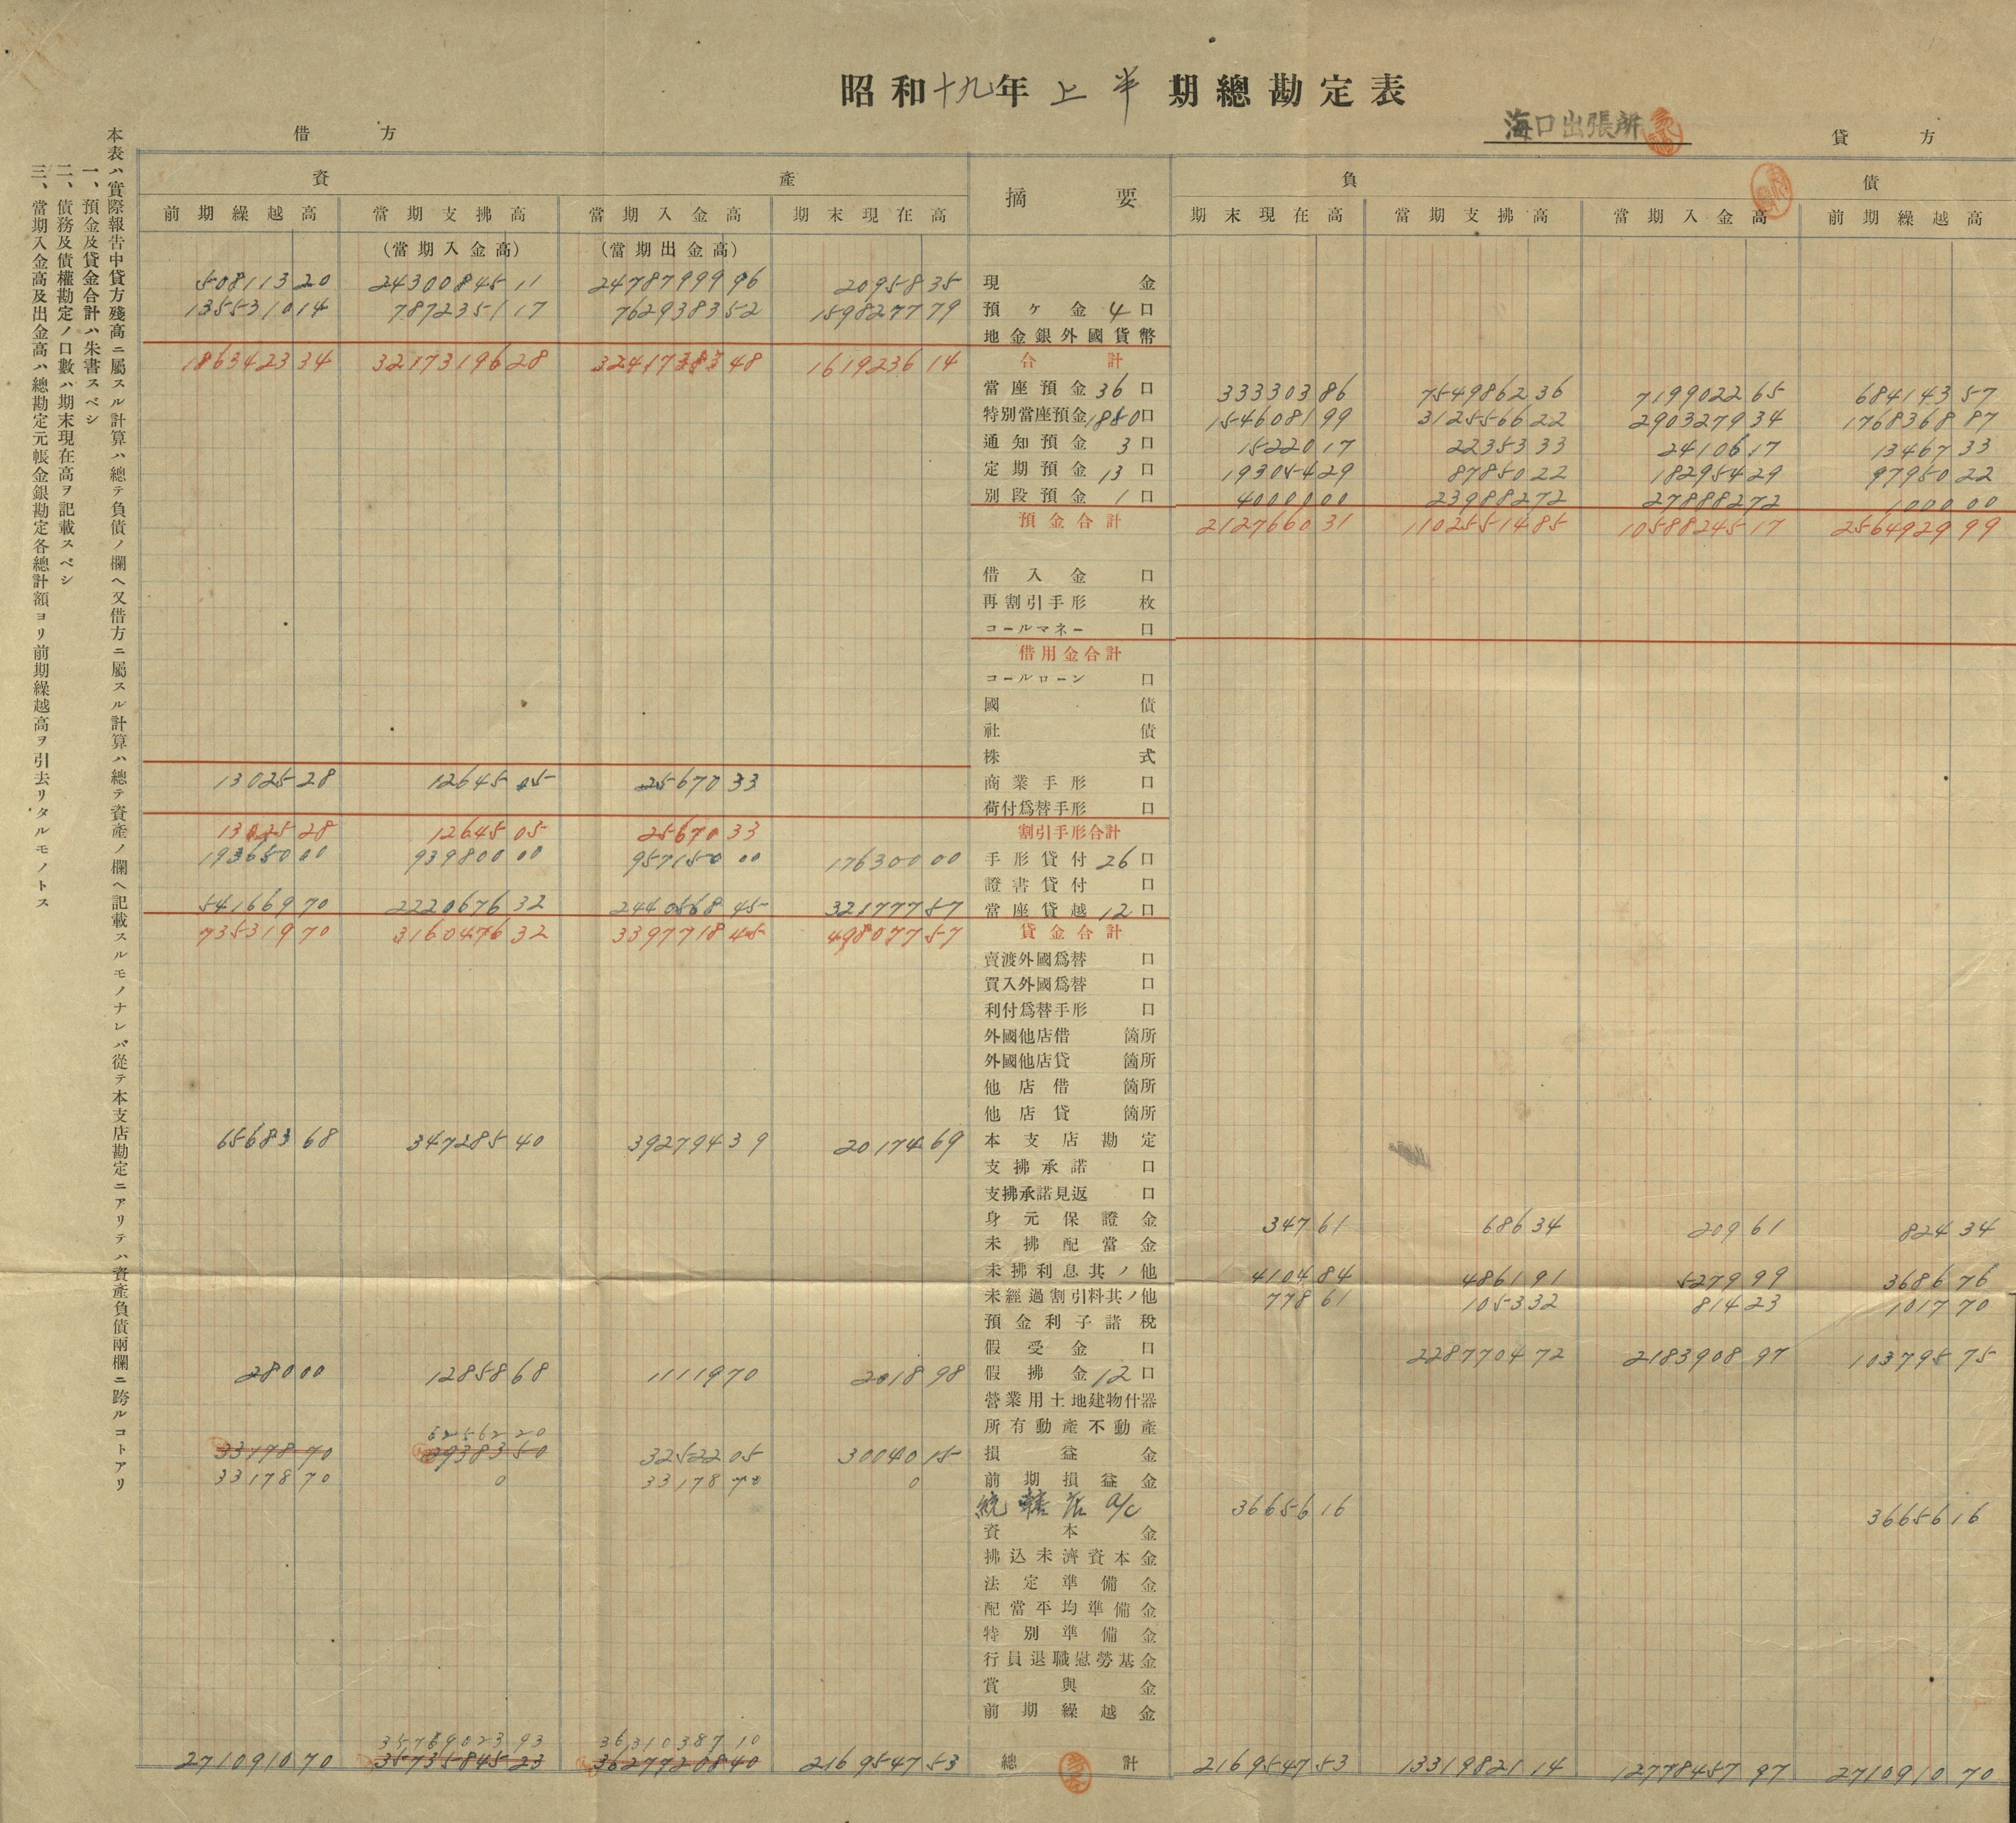 昭和十九年上半期總勘定表
海口出張所
借方 貸方
資產 摘要 負債
前期繰越高 當期支拂高 當期入金高 期末現在高 期末現在高 當期支拂高 當期入金高 前期繰越高
(當期入金高) (當期出金高)
508113 20 24300845 11 24787999 96 20958 35 現金
1355310 14 7872351 17 7629383 52 1598277 79 預ケ金 4口
地金銀外國貨幣
1863423 34 32173196 28 32417383 48 1619236 14 合計
當座預金 36口 333303 86 7549862 36 7199022 65 684143 57
特別當座預金 1850口 1546081 99 3125566 22 2903279 34 1768368 87
通知預金 3口 15220 17 22353 33 24106 17 13467 33
定期預金 13口 193054 29 87850 22 182954 29 97950 22
別段預金 1口 40000 00 239882 72 278882 72 1000 00
預金合計 2127660 31 11025514 85 10588245 17 2564929 99
借入金 口
再割引手形 枚
コールマネー 口
借用金合計
コールローン 口
國債
社債
株式
13025 28 12645 05 25670 33 商業手形 口
荷付爲替手形 口
13025 28 12645 05 25670 33 割引手形合計
193650 00 939800 00 957150 00 176300 00 手形貸付 26口
證書貸付 口
541669 70 2220676 32 2440568 45 321777 57 當座貸越 12口
735319 70 3160476 32 3397718 45 498077 57 貸金合計
賣渡外國爲替 口
買入外國爲替 口
利付爲替手形 口
外國他店借 箇所
外國他店貸 箇所
他店借 箇所
他店貸 箇所
65683 68 347285 40 392794 39 20174 69 本支店勘定
支拂承諾 口
支拂承諾見返 口
身元保證金 347 61 686 34 209 61 824 34
未拂配當金
未拂利息其ノ他 4104 84 4861 91 5279 99 3686 76
未經過割引料其ノ他 778 61 1053 32 814 23 1017 70
預金利子諸稅
假受金 口 2287704 72 2183908 97 103795 75
280 00 12858 68 11119 70 2018 98 假拂金 12口
營業用土地建物什器
所有動產不動產
62562 20
33178 70 39383 50 32522 05 30040 15 損益金
33178 70 0 33178 70 0 前期損益金
統轄店 a/c 36656 16 36656 16
資本金
拂込未濟資本金
法定準備金
配當平均準備金
特別準備金
行員退職慰勞基金
賞與金
前期繰越金
35769023 93 36310387 10
2710910 70 35735845 23 36277208 40 2169547 53 總計 2169547 53 13319821 14 12778457 97 2710910 70
本表ハ實際報告中貸方殘高ニ屬スル計算ハ總テ負債ノ欄へ又借方ニ屬スル計算ハ總テ資產ノ欄へ記載スルモノナレバ從テ本支店勘定ニアリテハ資產負債兩欄ニ跨ルコトアリ
一、預金及貸金合計ハ朱書スベシ
二、債務及債權勘定ノ口數ハ期末現在高ヲ記載スベシ
三、當期入金高及出金高ハ總勘定元帳金銀勘定各總計額ヨリ前期繰越高ヲ引去リタルモノトス